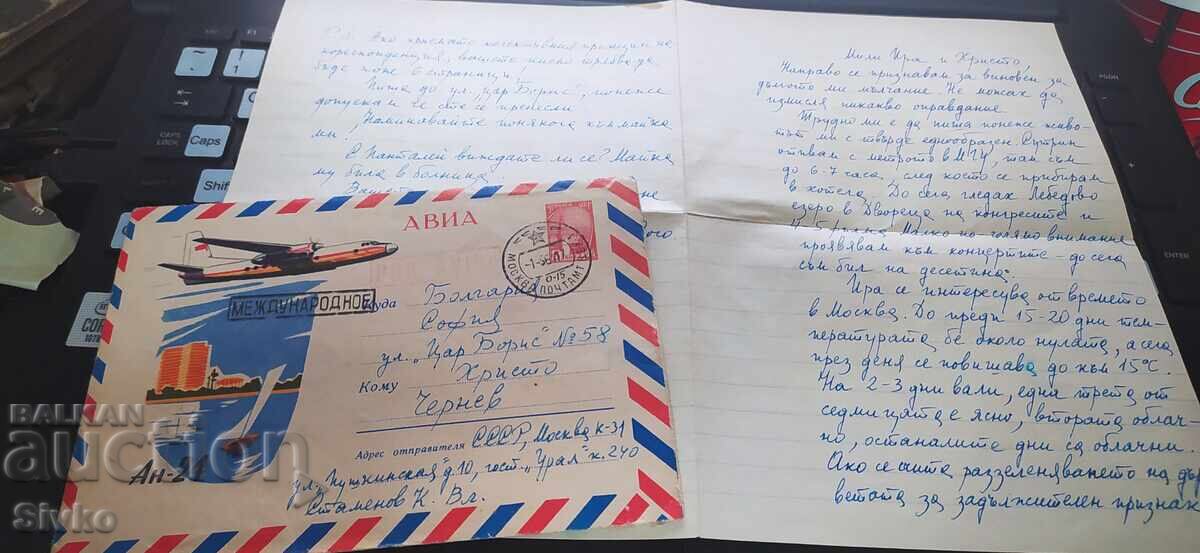 P.S. Ако приемате колективния принцип на
кореспонденция, вашето писмо трябва да
бъде поне в 4 страници.
Пиша до ул. „Цар Борис", понеже
допускам че сте се пренесли
Наминавайте понякога към майка
ми!
С Панталей виждате ли се? Майка
му била в болница.
Мили Ира и Христо
Направо се признавам за виновен за
дългото ми мълчание. Не можах да
измисля никакво оправдание.
Трудно ми е да пиша понеже живо-
тът ми е твърде еднообразен. Сутрин
отивам с метрото в МГУ, там съм
до 6-7 часа, след което се прибирам
в хотела. До сега гледах Лебедово
езеро в Двореца на конгресите и
4-5 филма. Малко по-голямо внимание
проявявам към концертите – до сега
съм бил на десетина.
Ира се интересува от времето
в Москва. До преди 15-20 дни тем-
пературата бе около нулата, а сега
през деня се повишава до към 15°С.
На 2-3 дни вали, една трета от
седмицата е ясно, втората облач-
но, останалите дни са облачни.
Ако считате раззеленяването на дър
ветата за задължителен признак
АВИА
МОСКВА ПОЧТАМТ
МЕЖДУНАРОДНОЕ
Куда
Болгария
София
ул. „Цар Борис" № 58
Кому
Христо
Чернев
Адрес отправителя СССР, Москва К-31
ул. „Пушкинская" д. 10, гост. „Урал" к. 240
Стаменов К. Вл.
Ан-24
Caps
CAPS
LOCK
Caps
Shift
ENTER
BALKAN
auction
Sivko